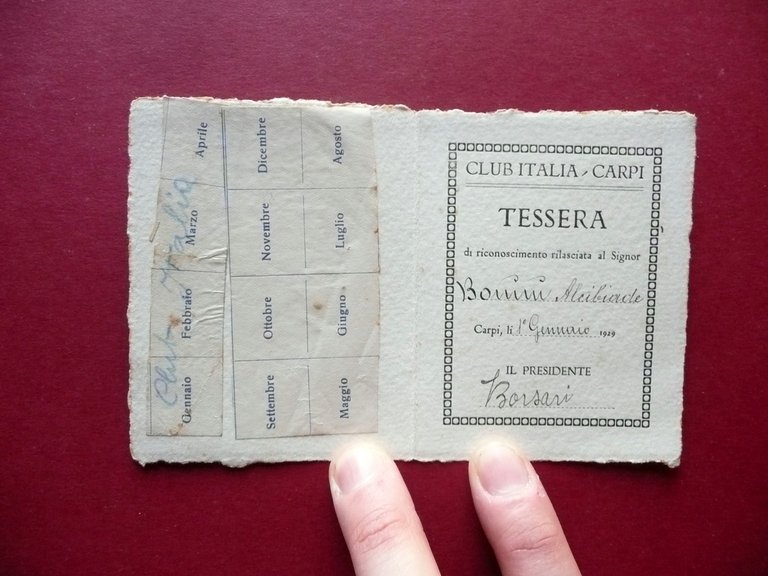 Gennaio Febbraio Marzo Aprile
Club Italia
Settembre Ottobre Novembre Dicembre
Maggio Giugno Luglio Agosto
CLUB ITALIA - CARPI
TESSERA
di riconoscimento rilasciata al Signor
Alcibiade
Carpi, lì 1º Gennaio 1929
IL PRESIDENTE
Borsari